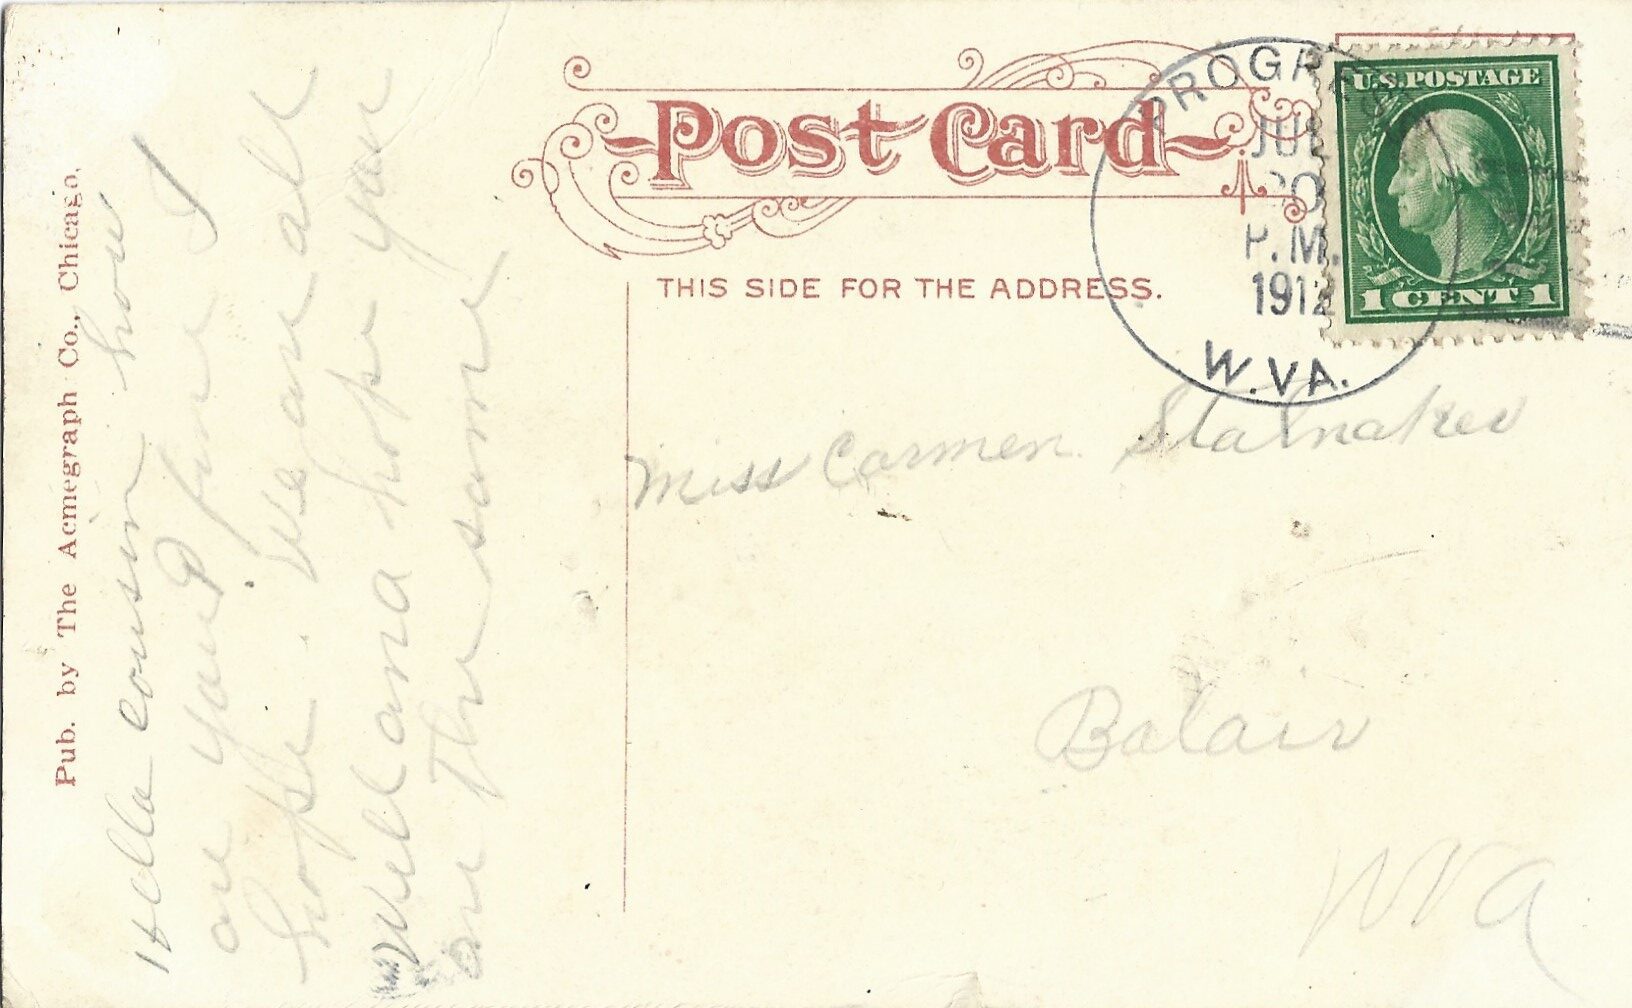 Post Card
THIS SIDE FOR THE ADDRESS.
PROGRESS
JUL
20
P.M.
1912
W.VA.
U.S. POSTAGE
1 CENT 1
Pub. by The Acmegraph Co., Chicago.
Hello cousin how
are you? fine I
hope. We are all
well and hope you
are the same
Miss Carmen Stalnaker
Balair
W Va